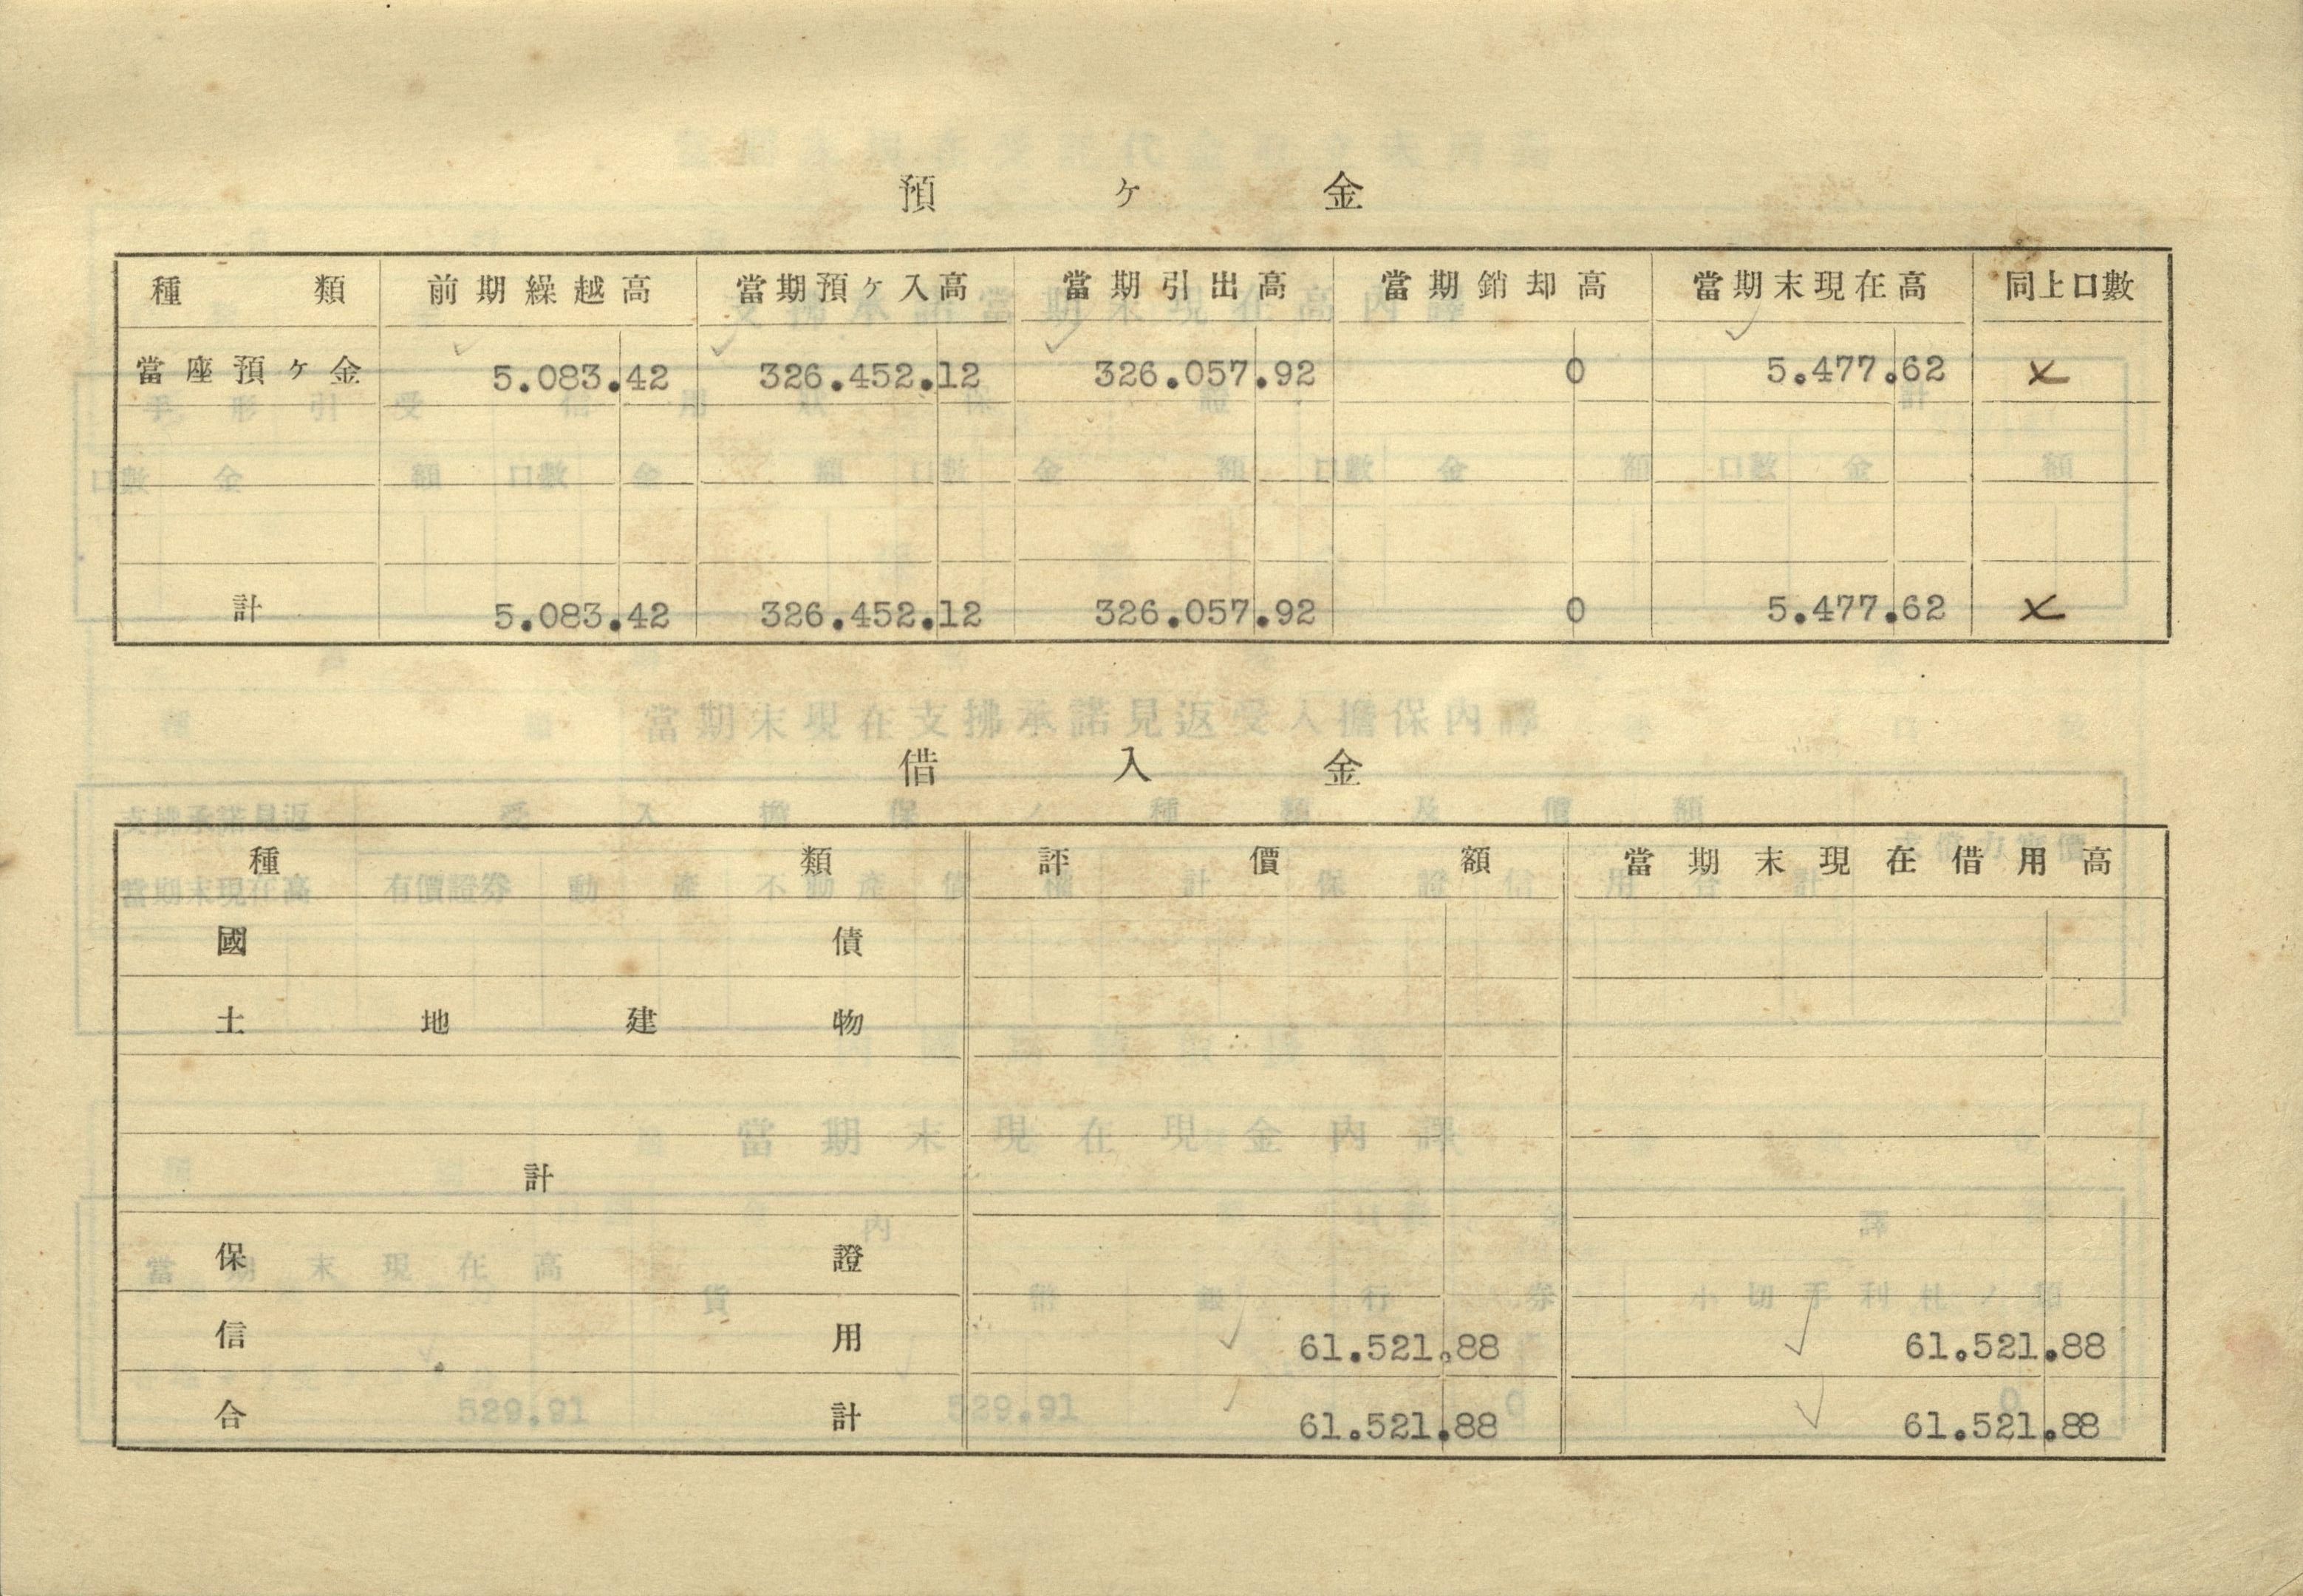 預ヶ金
種類 前期繰越高 當期預ヶ入高 當期引出高 當期銷却高 當期末現在高 同上口數
當座預ヶ金 5.083.42 326.452.12 326.057.92 0 5.477.62 x
計 5.083.42 326.452.12 326.057.92 0 5.477.62 x
借入金
種類 評價額 當期末現在借用高
國債
土地建物
計
保證
信用 61.521.88 61.521.88
合計 61.521.88 61.521.88